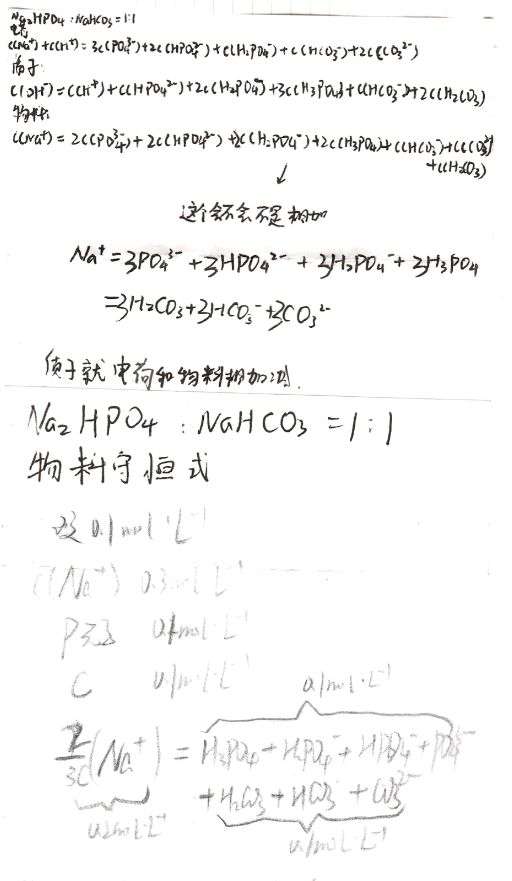 Na₂HPO₄ : NaHCO₃ = 1:1
电荷
c(Na⁺)+c(H⁺) = 3c(PO₄³⁻)+2c(HPO₄²⁻)+c(H₂PO₄⁻)+c(HCO₃⁻)+2c(CO₃²⁻)
质子:
c(OH⁻)=c(H⁺)+c(HPO₄²⁻)+2c(H₂PO₄⁻)+3c(H₃PO₄)+c(HCO₃⁻)+2c(H₂CO₃)
物料:
c(Na⁺) = 2c(PO₄³⁻)+2c(HPO₄²⁻)+2c(H₂PO₄⁻)+2c(H₃PO₄)+c(HCO₃⁻)+c(CO₃²⁻)
+c(H₂CO₃)
↓
这个会不会不是相加
Na⁺ = 3PO₄³⁻ + 3HPO₄²⁻ + 3H₂PO₄⁻ + 3H₃PO₄
=3H₂CO₃+3HCO₃⁻+3CO₃²⁻
质子就电荷和物料相加减.
Na₂HPO₄ : NaHCO₃ = 1:1
物料守恒式
设 0.1mol·L⁻¹
c(Na⁺) 0.3mol·L⁻¹
P 0.1mol·L⁻¹
C 0.1mol·L⁻¹
0.1mol·L⁻¹
2/3c(Na⁺) = H₃PO₄+H₂PO₄⁻+HPO₄²⁻+PO₄³⁻
+H₂CO₃+HCO₃⁻+CO₃²⁻
0.2mol·L⁻¹ 0.1mol·L⁻¹